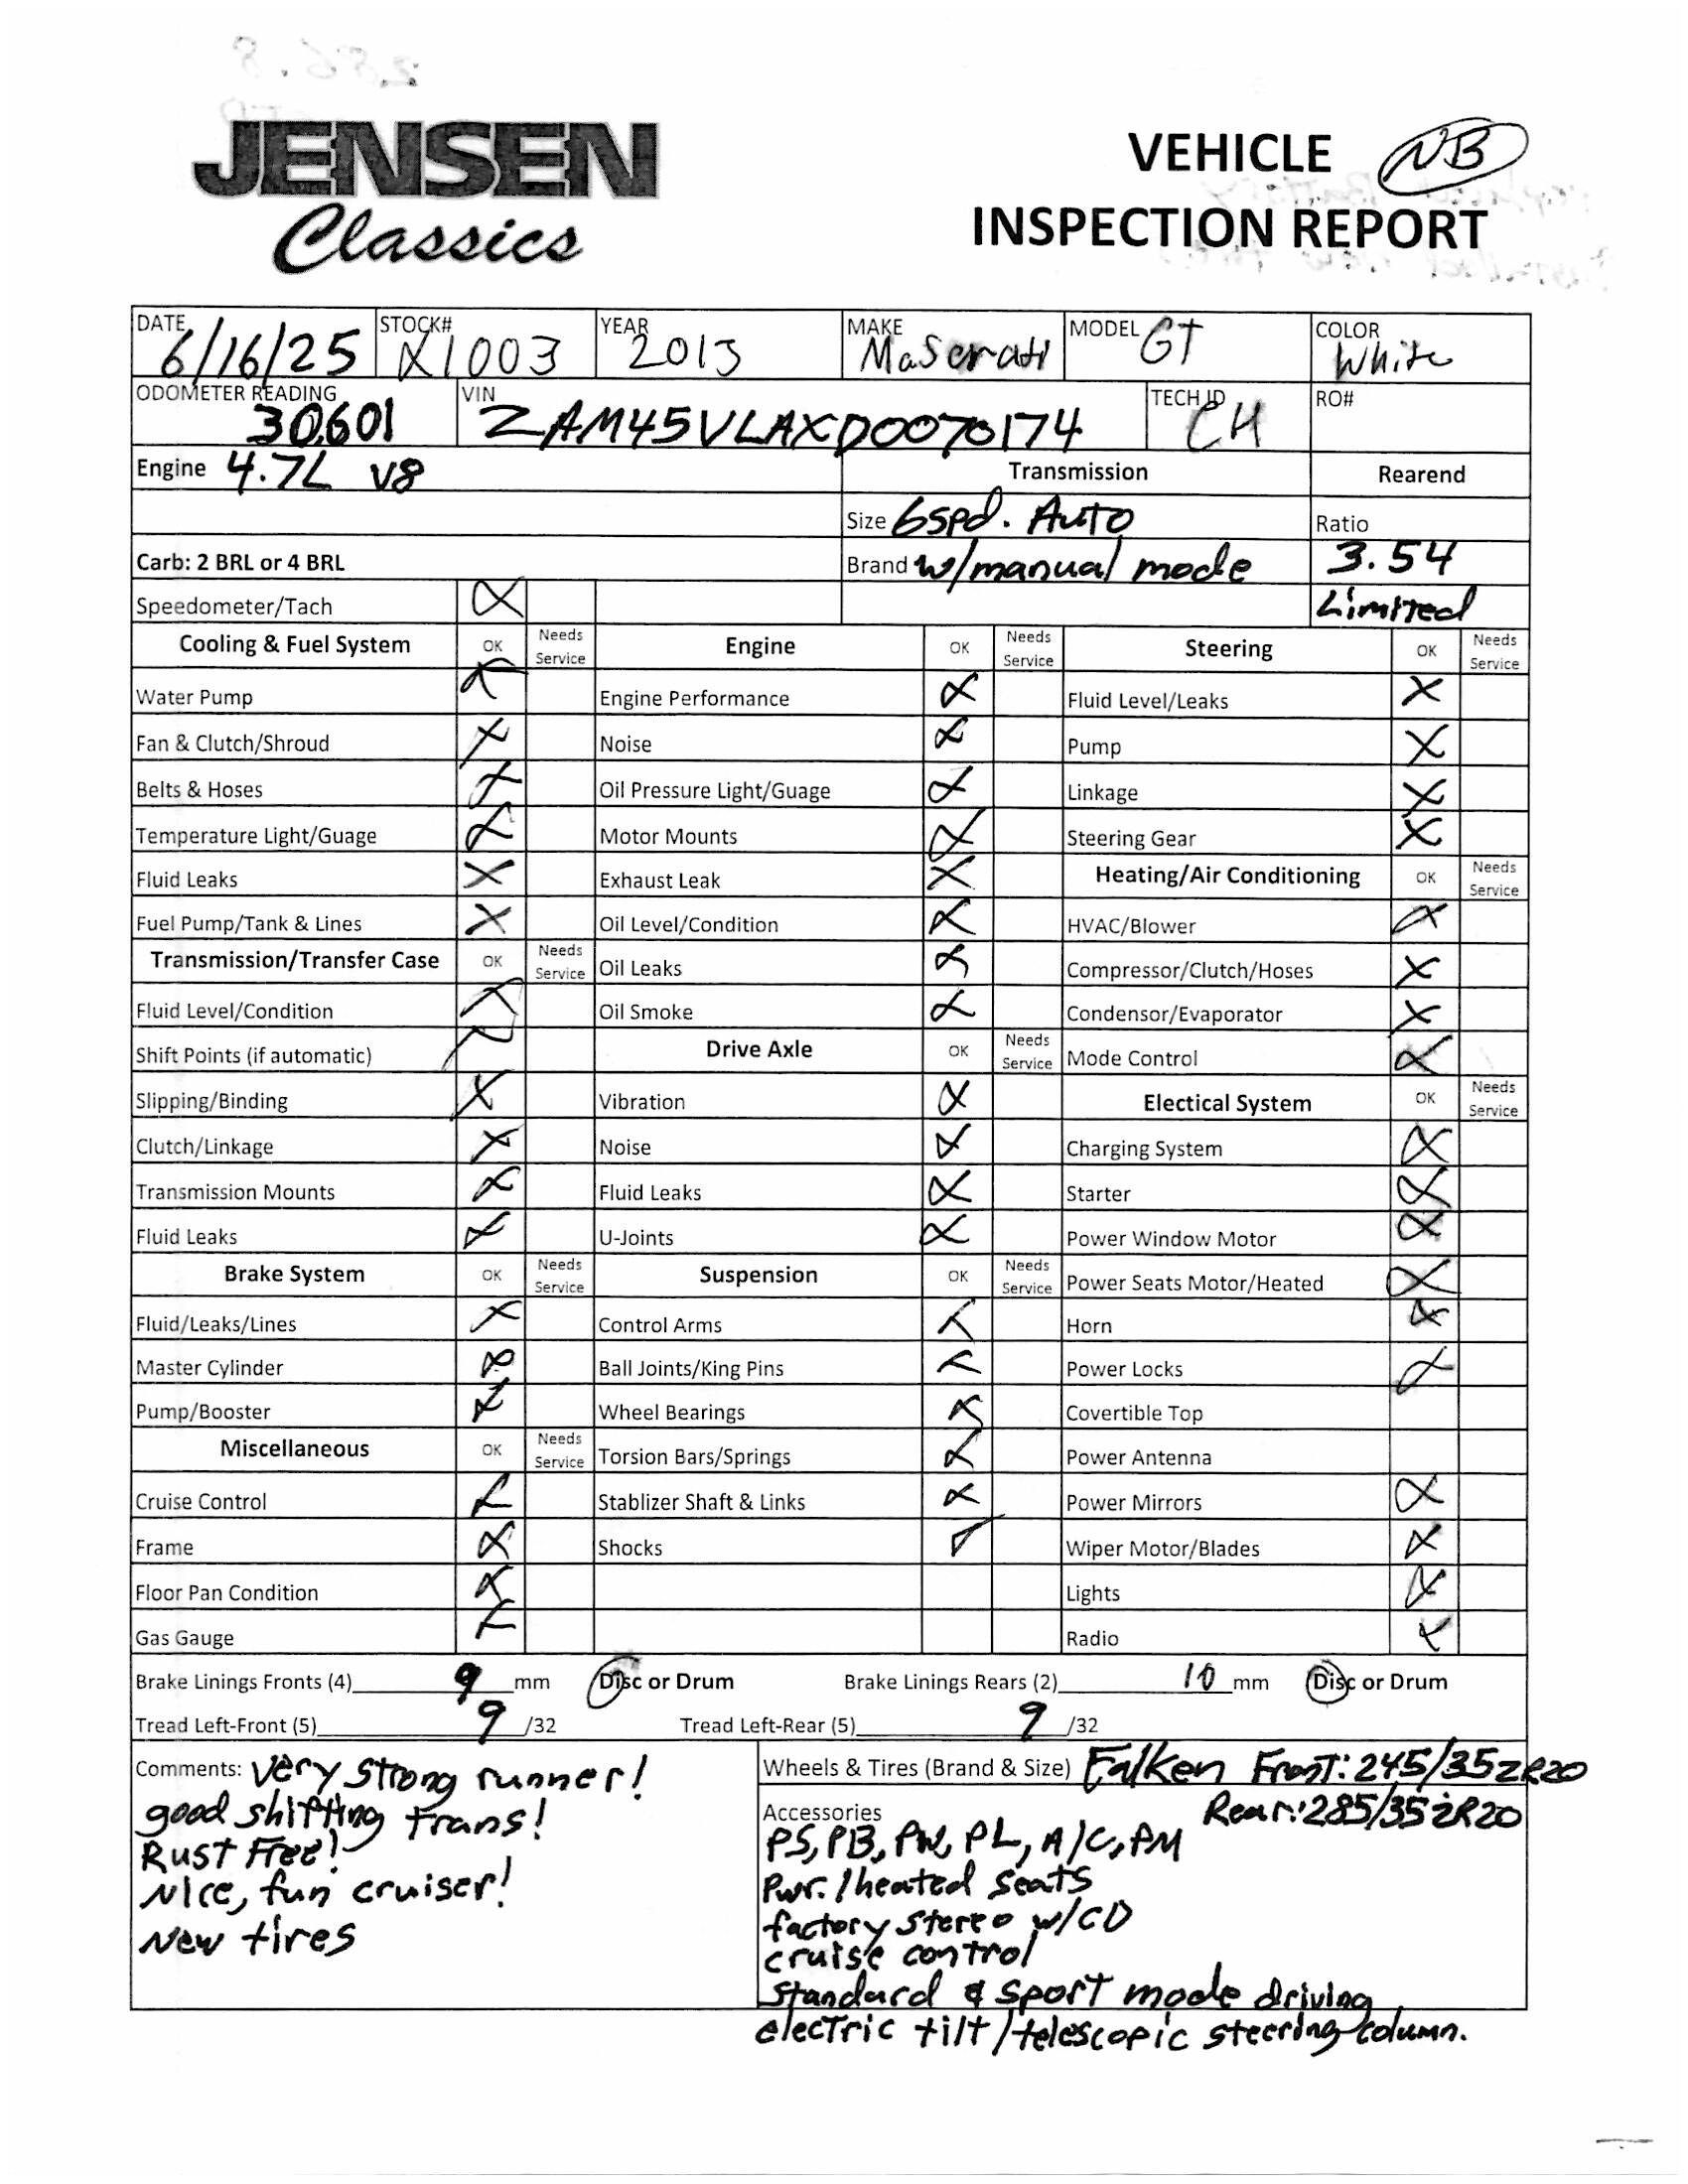 JENSEN
Classics
VEHICLE NB
INSPECTION REPORT
DATE 6/16/25 STOCK# X1003 YEAR 2013 MAKE Maserati MODEL GT COLOR White
ODOMETER READING 30,601 VIN ZAM45VLAXD0070174 TECH ID CH RO#
Engine 4.7L V8 Transmission Rearend
Size 6spd. Auto Ratio
Carb: 2 BRL or 4 BRL Brand w/manual mode 3.54
Speedometer/Tach X Limited
Cooling & Fuel System OK Needs Service Engine OK Needs Service Steering OK Needs Service
Water Pump X Engine Performance X Fluid Level/Leaks X
Fan & Clutch/Shroud X Noise X Pump X
Belts & Hoses X Oil Pressure Light/Guage X Linkage X
Temperature Light/Guage X Motor Mounts X Steering Gear X
Fluid Leaks X Exhaust Leak X Heating/Air Conditioning OK Needs Service
Fuel Pump/Tank & Lines X Oil Level/Condition X HVAC/Blower X
Transmission/Transfer Case OK Needs Service Oil Leaks X Compressor/Clutch/Hoses X
Fluid Level/Condition X Oil Smoke X Condensor/Evaporator X
Shift Points (if automatic) X Drive Axle OK Needs Service Mode Control X
Slipping/Binding X Vibration X Electical System OK Needs Service
Clutch/Linkage X Noise X Charging System X
Transmission Mounts X Fluid Leaks X Starter X
Fluid Leaks X U-Joints X Power Window Motor X
Brake System OK Needs Service Suspension OK Needs Service Power Seats Motor/Heated X
Fluid/Leaks/Lines X Control Arms X Horn X
Master Cylinder X Ball Joints/King Pins X Power Locks X
Pump/Booster X Wheel Bearings X Covertible Top
Miscellaneous OK Needs Service Torsion Bars/Springs X Power Antenna
Cruise Control X Stablizer Shaft & Links X Power Mirrors X
Frame X Shocks X Wiper Motor/Blades X
Floor Pan Condition X Lights X
Gas Gauge X Radio X
Brake Linings Fronts (4) 9 mm Disc or Drum Brake Linings Rears (2) 10 mm Disc or Drum
Tread Left-Front (5) 9 /32 Tread Left-Rear (5) 9 /32
Comments: Very strong runner!
good shifting trans!
Rust Free!
Nice, fun cruiser!
New tires
Wheels & Tires (Brand & Size) Falken Front: 245/35ZR20
Rear: 285/35ZR20
Accessories
PS, PB, PW, PL, A/C, PM
Pwr. /heated seats
factory stereo w/CD
cruise control
Standard & sport mode driving
electric tilt/telescopic steering column.